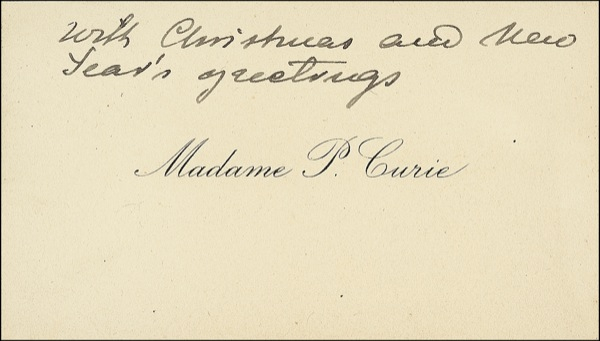 With Christmas and New
Year's greetings
Madame P. Curie